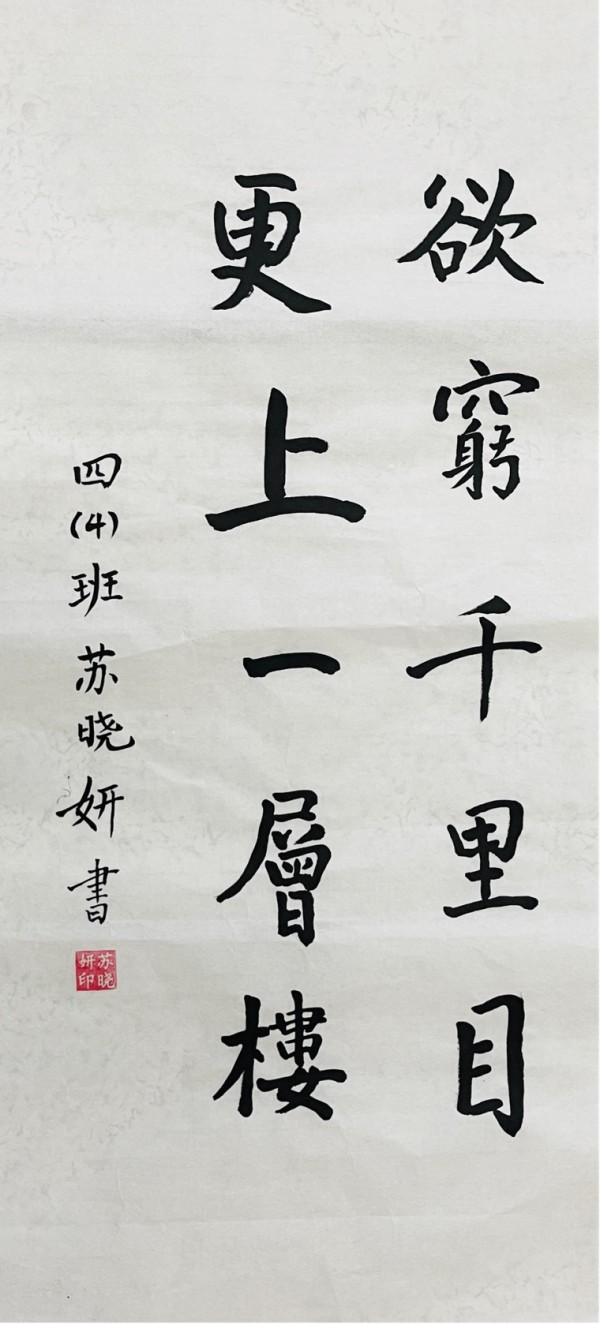 欲窮千里目
更上一層樓
四(4)班苏晓妍書
苏晓
妍印